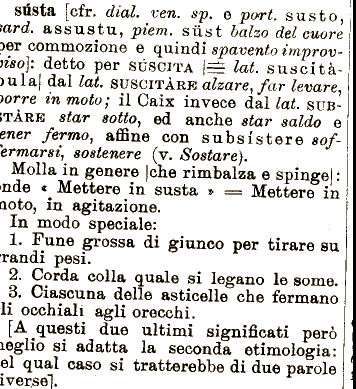 sústa [cfr. dial. ven. sp. e port. susto,
sard. assustu, piem. süst balzo del cuore
per commozione e quindi spavento improv-
viso]: detto per SÚSCITA [= lat. suscità-
bula] dal lat. SUSCITÀRE alzare, far levare,
porre in moto; il Caix invece dal lat. SUB-
STÀRE star sotto, ed anche star saldo e
tener fermo, affine con subsístere sof-
fermarsi, sostenere (v. Sostare).
Molla in genere [che rimbalza e spinge]:
onde « Mettere in susta » = Mettere in
moto, in agitazione.
In modo speciale:
1. Fune grossa di giunco per tirare su
grandi pesi.
2. Corda colla quale si legano le some.
3. Ciascuna delle asticelle che fermano
gli occhiali agli orecchi.
[A questi due ultimi significati però
meglio si adatta la seconda etimologia:
nel qual caso si tratterebbe di due parole
diverse].